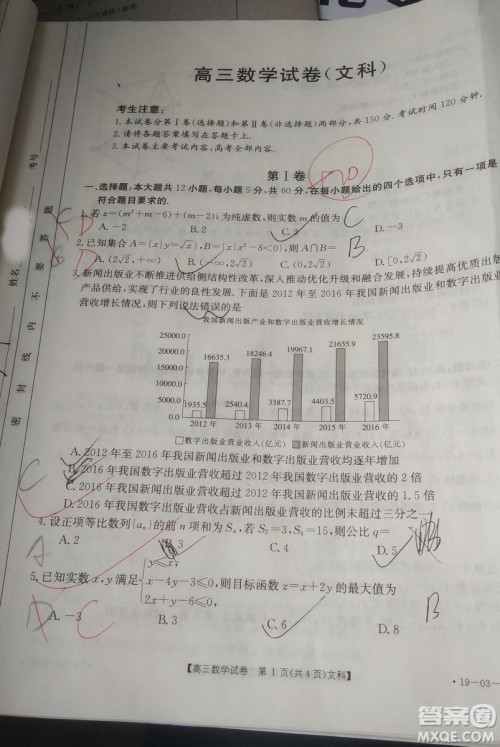 高三数学试卷(文科)
考生注意:
1.本试卷分第Ⅰ卷(选择题)和第Ⅱ卷(非选择题)两部分,共150分.考试时间120分钟.
2.请将各题答案填写在答题卡上.
3.本试卷主要考试内容:高考全部内容.
第Ⅰ卷
一、选择题:本大题共12小题,每小题5分,共60分,在每小题给出的四个选项中,只有一项是
符合题目要求的.
1.若z=(m²+m-6)+(m-2)i为纯虚数,则实数m的值为
C
A.-2 B.2 C.3 D.-3
2.已知集合A={x|y=√x},B={x|x²-8<0},则A∩B=
B
A.(2√2,+∞) B.(-∞,2√2) C.[0,2√2) D.(0,2√2)
3.新闻出版业不断推进供给侧结构性改革,深入推动优化升级和融合发展,持续提高优质出
产品供给,实现了行业的良性发展.下面是2012年至2016年我国新闻出版业和数字出版业
营收增长情况,则下列说法错误的是
我国新闻出版产业和数字出版业营收增长情况
25000.0
20000.0
15000.0
10000.0
5000.0
0.0
1935.5 16635.3 2540.4 18246.4 3387.7 19967.1 4403.5 21655.9 5720.9 23595.8
2012年 2013年 2014年 2015年 2016年
数字出版业营业收入(亿元) 新闻出版业营业收入(亿元)
A.2012年至2016年我国新闻出版业和数字出版业营收均逐年增加
B.2016年我国数字出版业营收超过2012年我国数字出版业营收的2倍
C.2016年我国新闻出版业营收超过2012年我国新闻出版业营收的1.5倍
D.2016年我国数字出版业营收占新闻出版业营收的比例未超过三分之一
C
4.设正项等比数列{aₙ}的前n项和为Sₙ,若S₂=3,S₄=15,则公比q=
A.2 B.3 C.4 D.5
A
5.已知实数x,y满足{y≤x, x-4y-3≤0, 2x+y-6≤0,则目标函数z=x+2y的最大值为
A.-3 B.3 C.6 D.8
D C
B
【高三数学试卷 第1页(共4页)文科】
·19-03-
考号
姓名
密封线内不要答题
答案圈
MXQE.COM